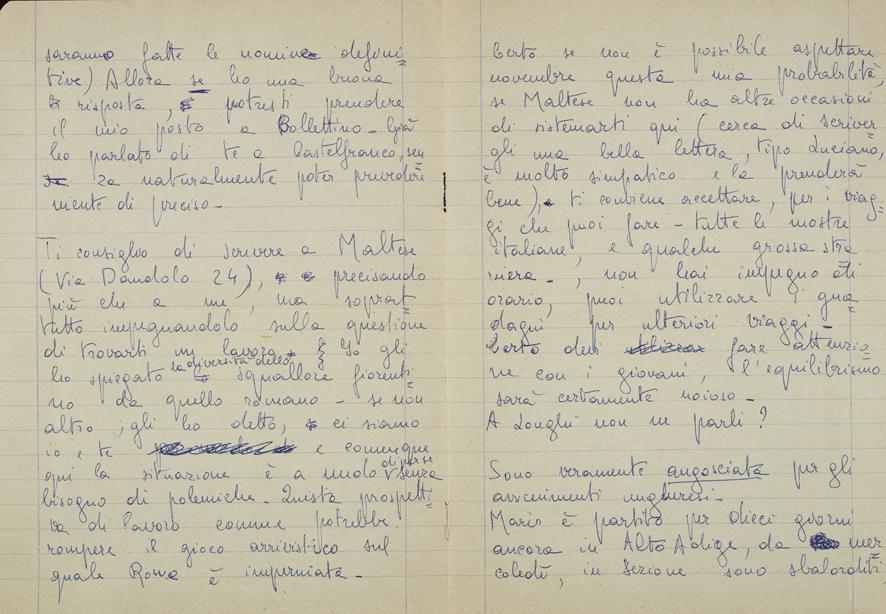 saranno fatte le nomine defini=
tive) Allora se ho una buona
risposta, potresti prendere
il mio posto a Bollettino - Già
ho parlato di te a Castelfranco, sen
za naturalmente poter prevedere
niente di preciso -
Ti consiglio di scrivere a Maltese
(Via Dandolo 24), precisando
più che a me, ma soprat=
tutto impegnandolo sulla questione
di trovarti un lavoro. Io gli
ho spiegato la diversità dello squallore fiorenti=
no da quello romano - se non
altro, gli ho detto, ci siamo
io e te e comunque
qui la situazione è a nudo senza
bisogno di polemiche - Questa prospetti=
va di lavoro comune potrebbe
rompere il gioco arrivistico sul
quale Roma è imperniata -
Certo se non è possibile aspettare
novembre questa mia probabilità,
se Maltese non ha altre occasioni
di sistemarti qui (cerca di scriver=
gli una bella lettera, tipo Luciano,
è molto simpatico e la prenderà
bene), ti conviene accettare, per i viag=
gi che puoi fare - tutte le mostre
italiane, e qualche grossa stra
niera -, non hai impegno di
orario, puoi utilizzare i gua=
dagni per ulteriori viaggi -
Certo devi fare attenzio=
ne con i giovani, l'equilibrismo
sarà certamente noioso -
A Longhi non ne parli?
Sono veramente angosciata per gli
avvenimenti ungheresi -
Mario è partito per dieci giorni
ancora in Alto Adige, da mer=
coledì, in sezione sono sbalorditi